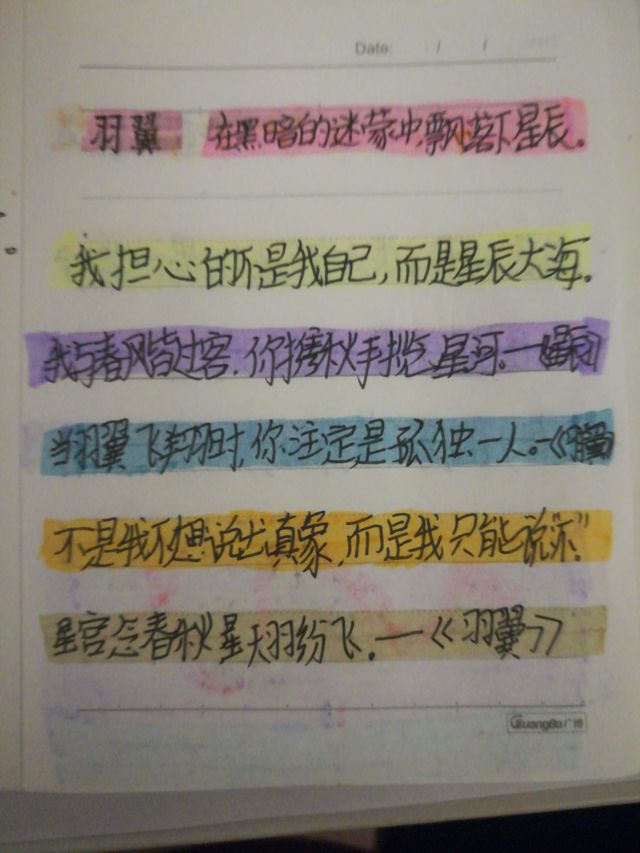 Date: / /
羽翼 在黑暗的迷蒙中,飘落下星辰。
我担心的不是我自己,而是星辰大海。
我与春风皆过客,你携秋水揽星河。一
当羽翼飞翔时,你注定是孤独一人。一《羽翼
不是我不想说出真象,而是我只能说“不”
星宫念春秋星天羽纷飞。一《羽翼》
GuangBo广博